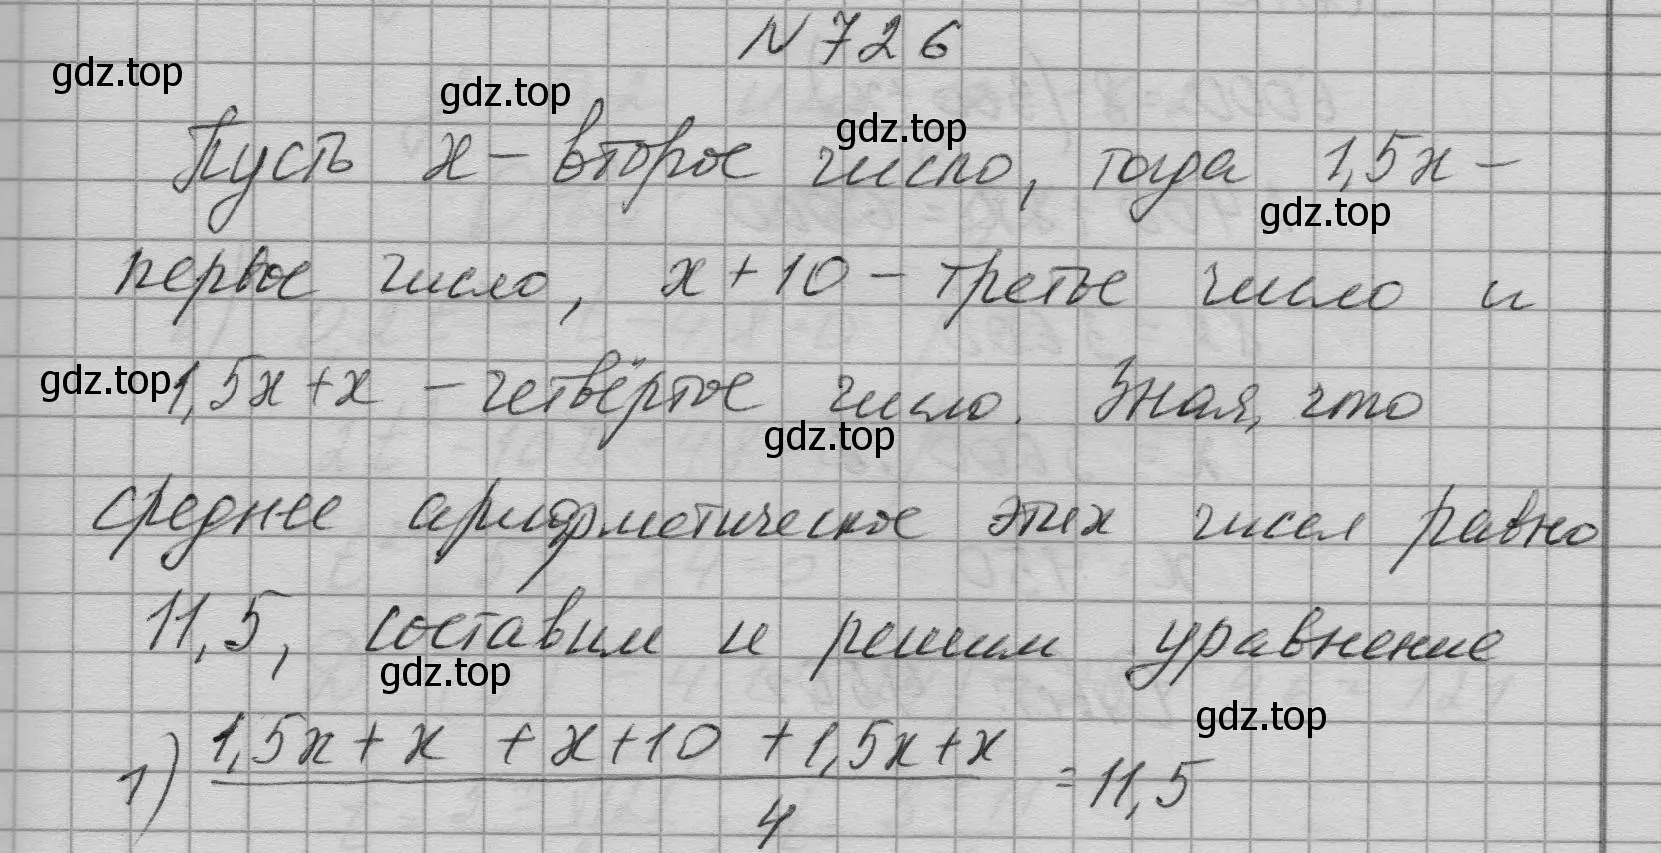 N 726
gdz.top
gdz.top
gdz.top
Пусть x – второе число, тогда 1,5x –
gdz.top
первое число, x + 10 – третье число и
gdz.top
1,5x + x – четвёртое число. Зная, что
gdz.top
среднее арифметическое этих чисел равно
11,5, составим и решим уравнение
gdz.top
gdz.top
1) (1,5x + x + x + 10 + 1,5x + x) / 4 = 11,5